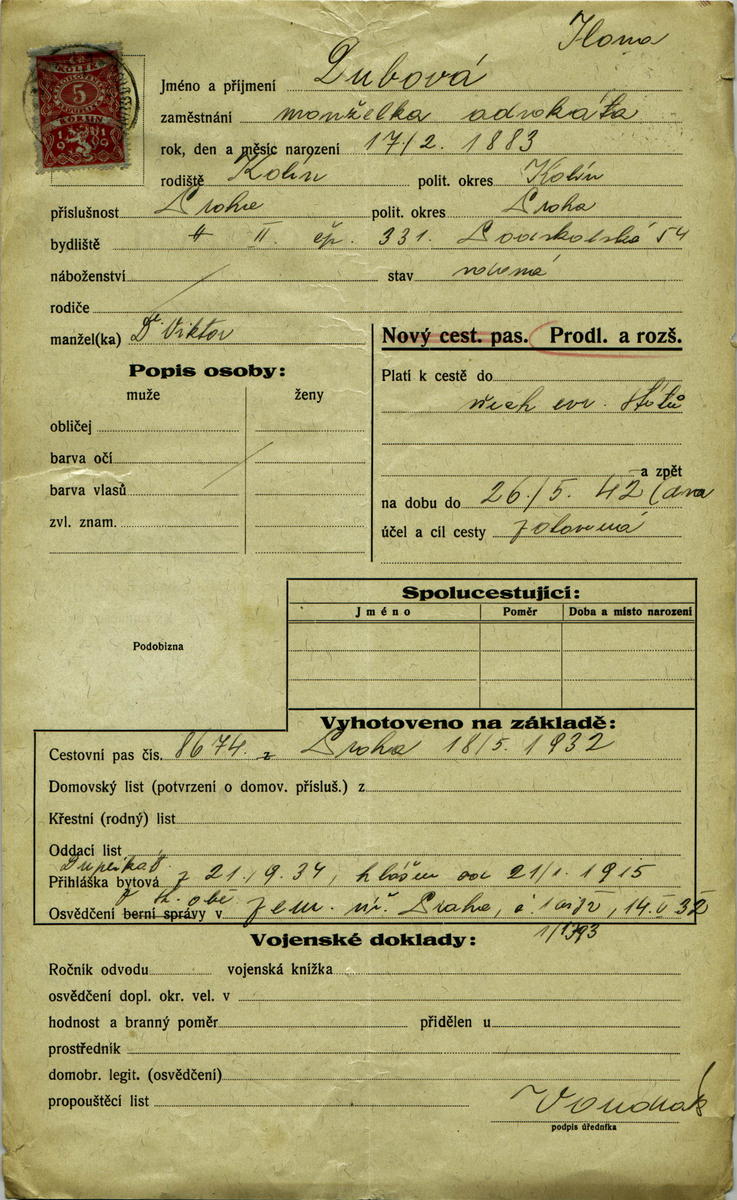 Ilona
KOLEK
5
KORUN
1919
Jméno a příjmení Dubová
zaměstnání manželka advokáta
rok, den a měsíc narození 17/2. 1883
rodiště Kolín polit. okres Kolín
příslušnost Praha polit. okres Praha
bydliště " II. čp. 331. Podskalská 54
náboženství stav
rodiče
manžel(ka) Dr. Viktor
Nový cest. pas. Prodl. a rozš.
Popis osoby:
muže ženy
obličej
barva očí
barva vlasů
zvl. znam.
Platí k cestě do
všech evr. států
a zpět
na dobu do 26/5. 42
účel a cíl cesty zotavená
Spolucestující:
Jméno Poměr Doba a místo narození
Podobizna
Vyhotoveno na základě:
Cestovní pas čís. 8674. z Praha 18/5. 1932
Domovský list (potvrzení o domov. přísluš.) z
Křestní (rodný) list
Oddací list
Duplikát
Přihláška bytová z 21./9. 34, hlášen od 21/1. 1915
Osvědčení berní správy v zem. úř. Praha, 14. V 32
Vojenské doklady:
Ročník odvodu vojenská knížka
osvědčení dopl. okr. vel. v
hodnost a branný poměr přidělen u
prostředník
domobr. legit. (osvědčení)
propouštěcí list
podpis úředníka